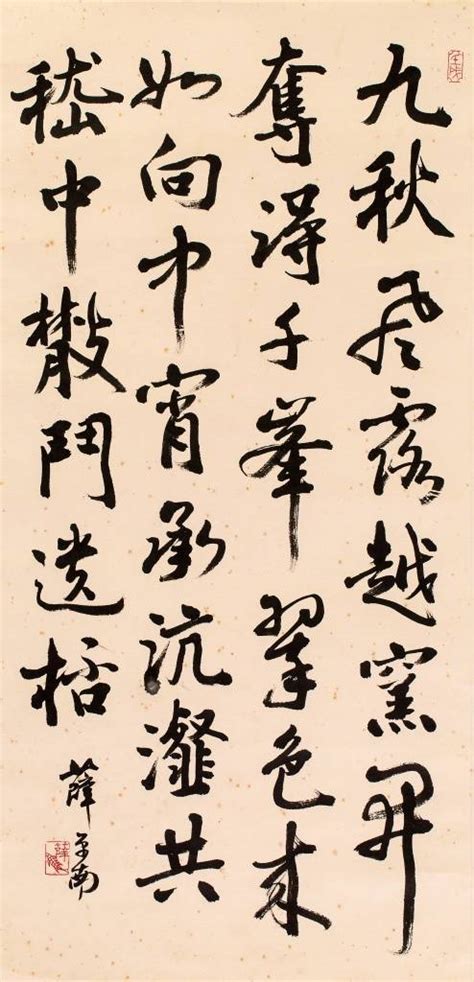 九秋風露越窯開
奪得千峯翠色来
如向中宵承沆瀣共
嵇中散鬥遺桮
薛平南